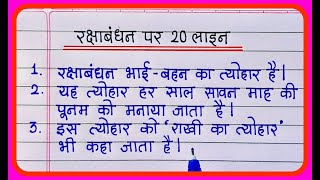 रक्षाबंधन पर 20 लाइन
1. रक्षाबंधन भाई-बहन का त्योहार है।
2. यह त्योहार हर साल सावन माह की
पूनम को मनाया जाता है।
3. इस त्योहार को 'राखी का त्योहार'
भी कहा जाता है।